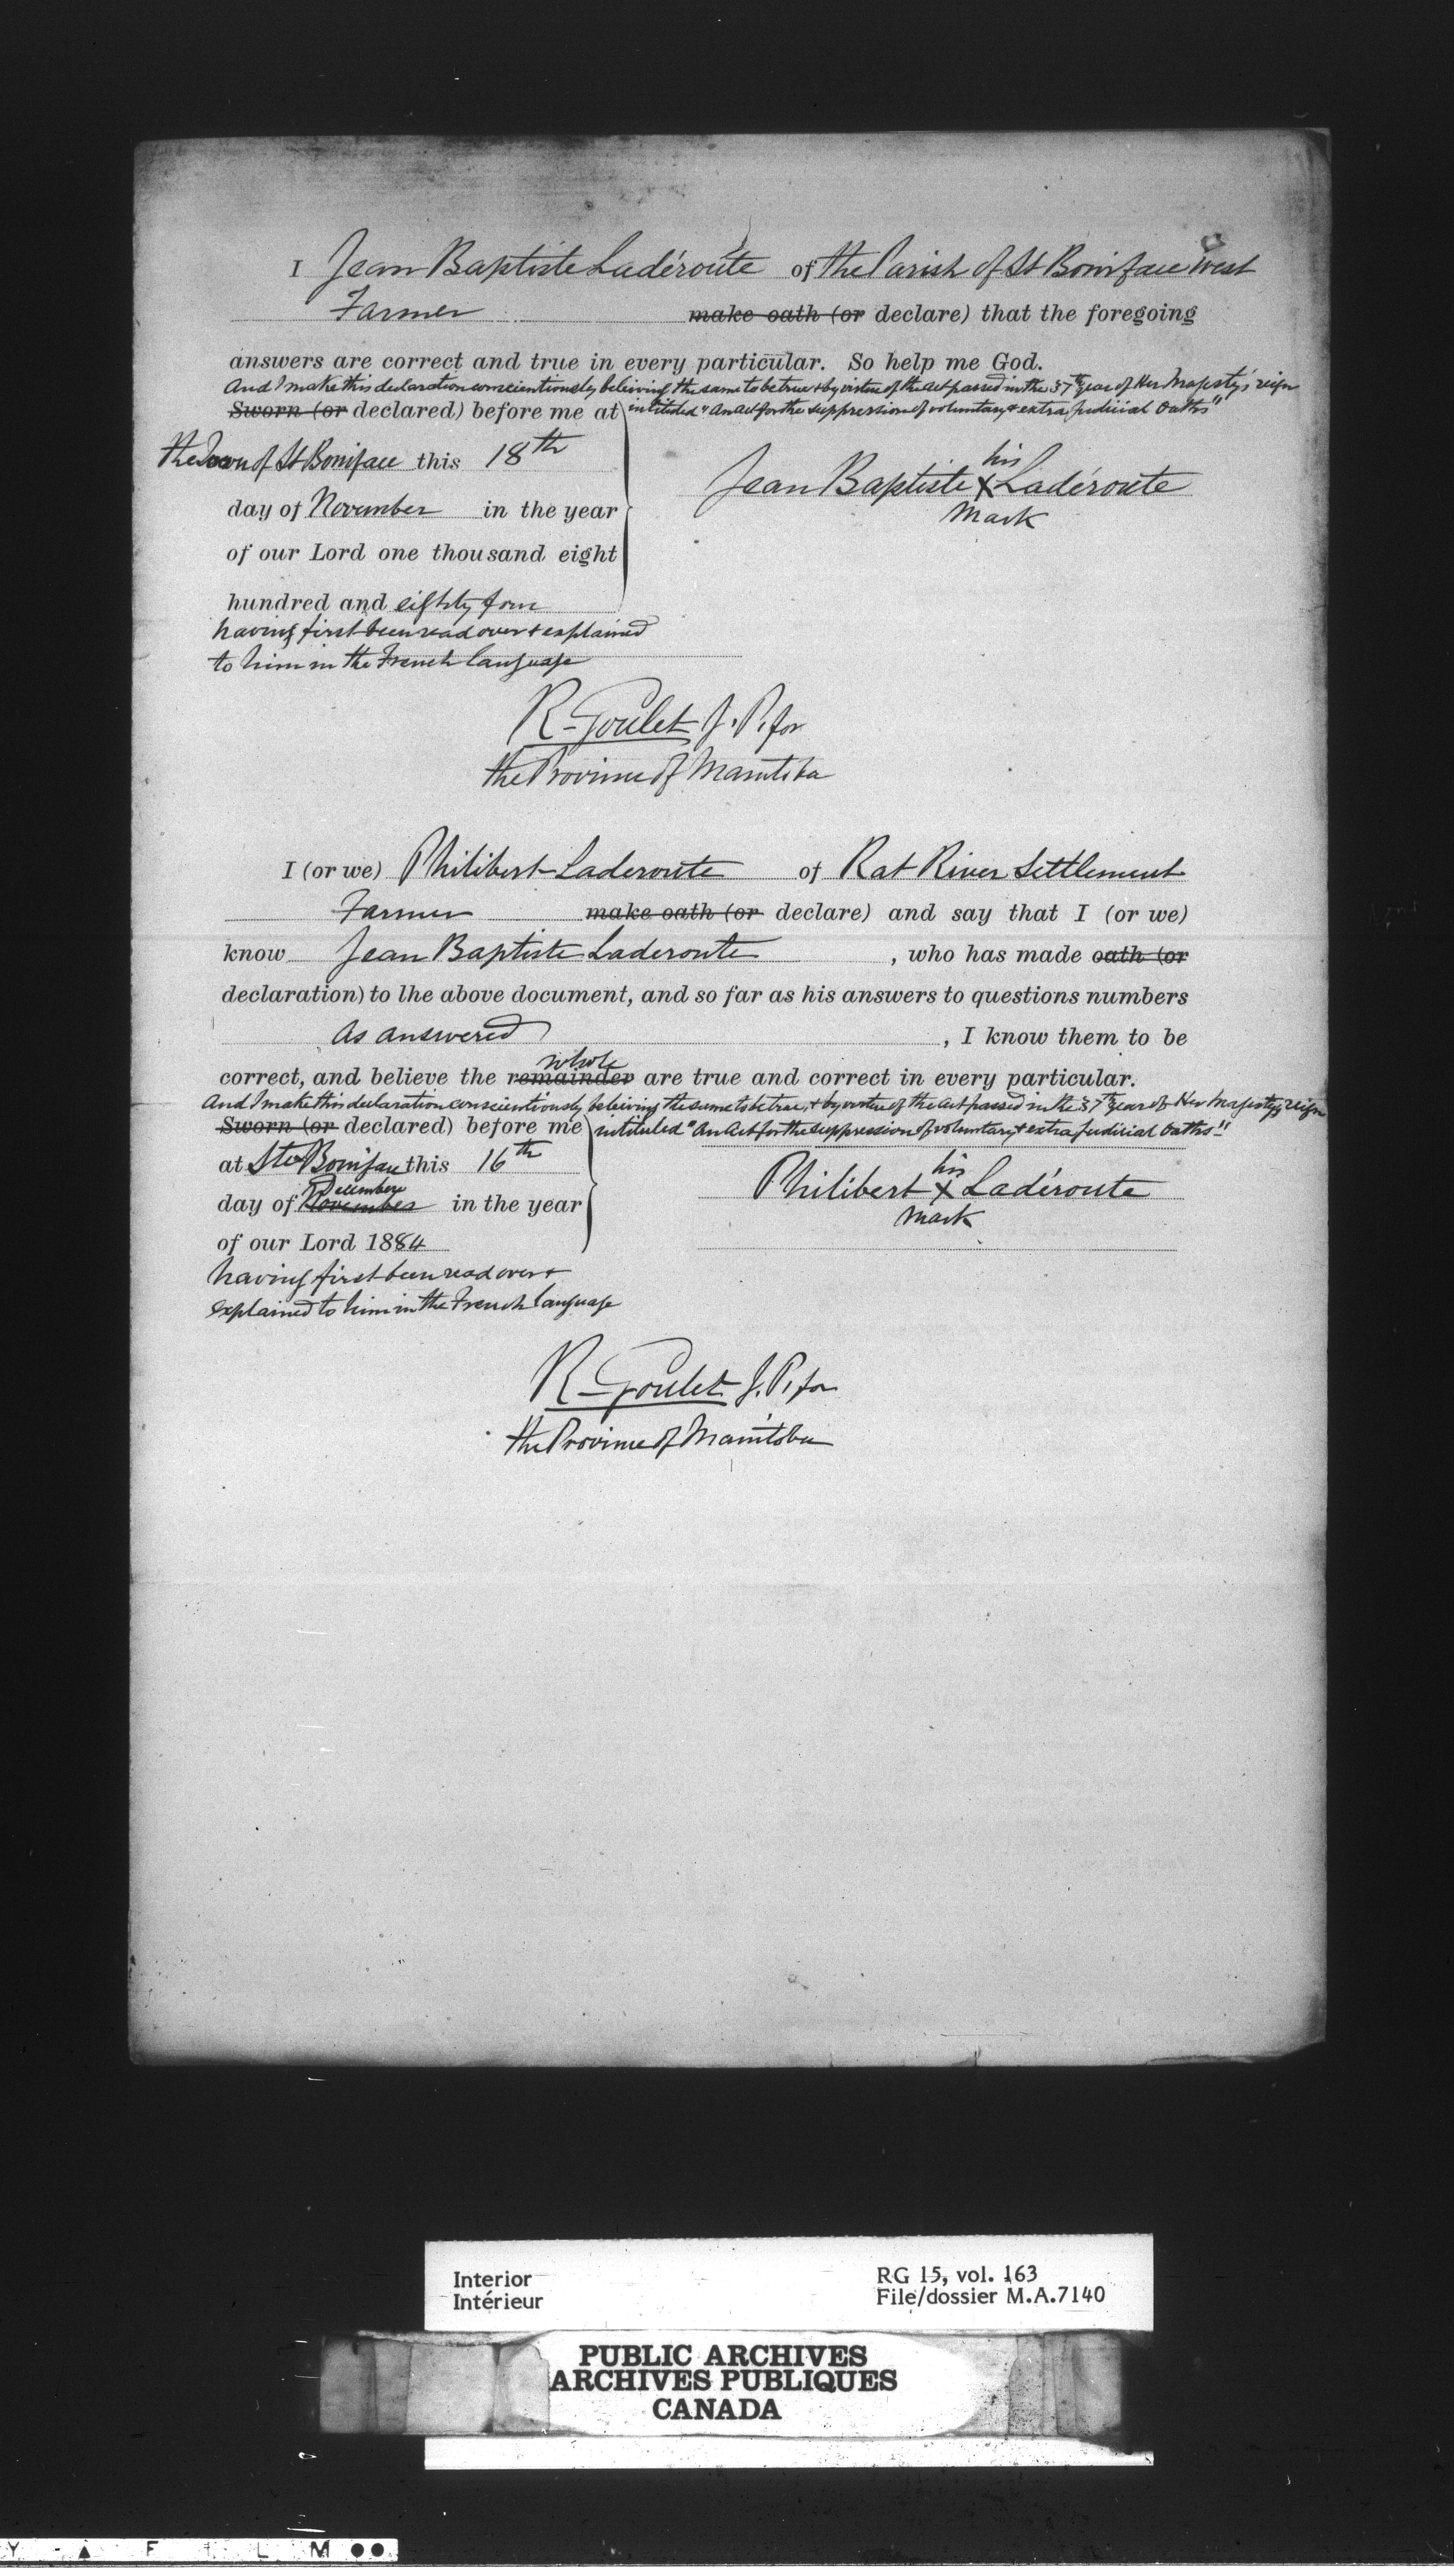 I Jean Baptiste Ladéroute of the Parish of St Boniface West
Farmer make oath (or declare) that the foregoing
answers are correct and true in every particular. So help me God.
And I make this declaration conscientiously beleiving the same to be true & by virtue of the act passed in the 37th year of Her Majesty's reign
Sworn (or declared) before me at intituled "An Act for the suppression of voluntary & extra judicial Oaths"
the Town of St Boniface this 18th
his
Jean Baptiste X Ladéroute
mark
day of November in the year
of our Lord one thousand eight
hundred and eighty four
having first been read over & explained
to him in the French language
R. Goulet J. P. for
the Province of Manitoba
I (or we) Philibert Laderoute of Rat River Settlement
Farmer make oath (or declare) and say that I (or we)
know Jean Baptiste Laderoute , who has made oath (or
declaration) to lhe above document, and so far as his answers to questions numbers
As answered , I know them to be
whole
correct, and believe the remainder are true and correct in every particular.
And I make this declaration conscientiously beleiving the same to be true, & by virtue of the act passed in the 37th year of Her Majesty's reign
Sworn (or declared) before me intituled "An Act for the suppression of voluntary & extra judicial Oaths"
at St Boniface this 16th
his
Philibert X Ladéroute
mark
December
day of November in the year
of our Lord 1884
having first been read over &
explained to him in the French language
R. Goulet J. P. for
the Province of Manitoba
Interior RG 15, vol. 163
Intérieur File/dossier M.A.7140
PUBLIC ARCHIVES
ARCHIVES PUBLIQUES
CANADA